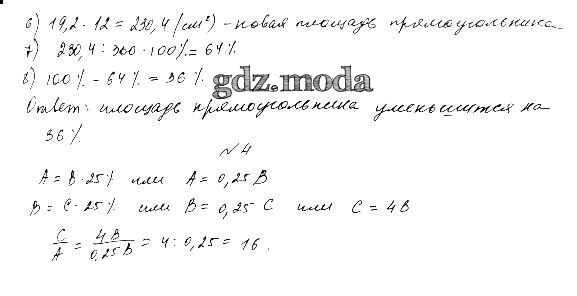 6) 19,2 · 12 = 230,4 (см²) - новая площадь прямоугольника.
7) 230,4 : 360 · 100% = 64%
8) 100% - 64% = 36%.
gdz.moda
Ответ: площадь прямоугольника уменьшится на
36%
№4
A = B · 25% или A = 0,25 B
B = C · 25% или B = 0,25 C или C = 4B
C/A = 4B/0,25B = 4 : 0,25 = 16.